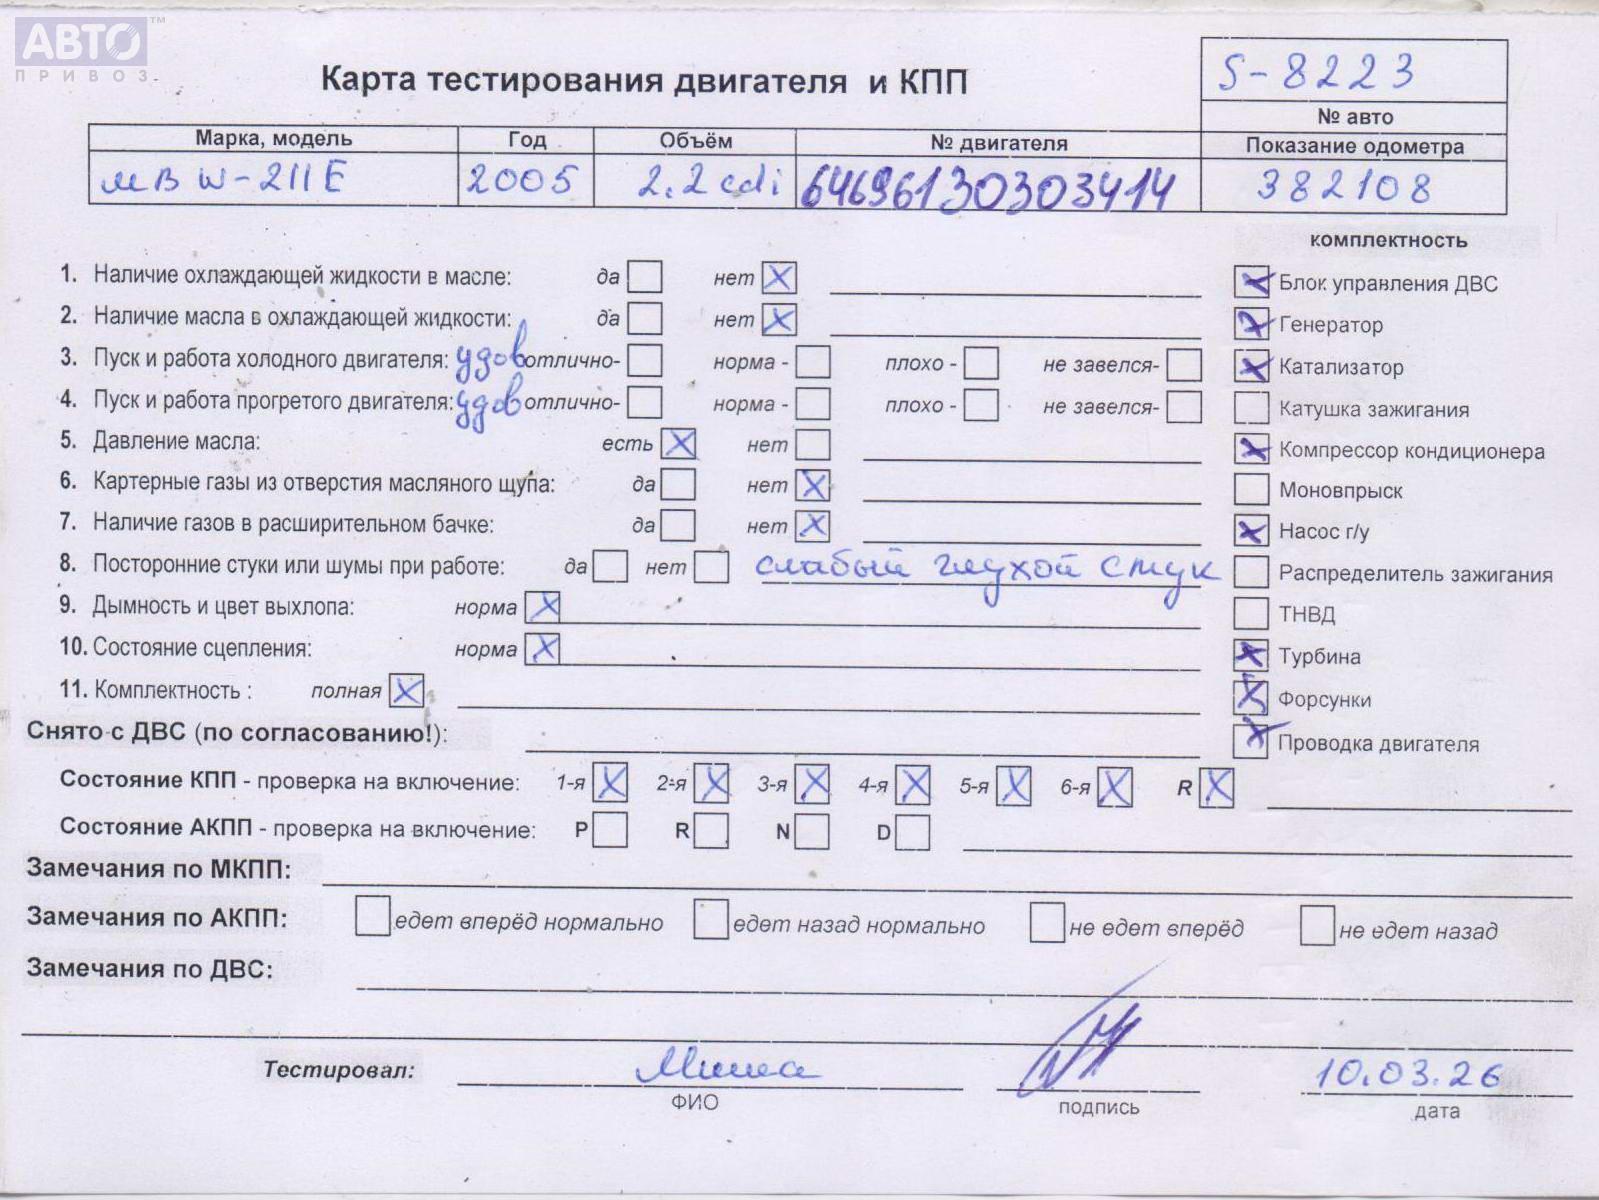 АВТО™
ПРИВОЗ
Карта тестирования двигателя и КПП
S-8223
№ авто
Марка, модель Год Объём № двигателя Показание одометра
МВ W-211E 2005 2.2 cdi 64696130303414 382108
комплектность
1. Наличие охлаждающей жидкости в масле: да нет X
Блок управления ДВС X
2. Наличие масла в охлаждающей жидкости: да нет X
Генератор X
3. Пуск и работа холодного двигателя: удов отлично- норма - плохо - не завелся-
Катализатор X
4. Пуск и работа прогретого двигателя: удов отлично- норма - плохо - не завелся-
Катушка зажигания
5. Давление масла: есть X нет
Компрессор кондиционера X
6. Картерные газы из отверстия масляного щупа: да нет X
Моновпрыск
7. Наличие газов в расширительном бачке: да нет X
Насос г/у X
8. Посторонние стуки или шумы при работе: да нет слабый глухой стук
Распределитель зажигания
9. Дымность и цвет выхлопа: норма X
ТНВД
10. Состояние сцепления: норма X
Турбина X
11. Комплектность : полная X
Форсунки X
Снято с ДВС (по согласованию!):
Проводка двигателя X
Состояние КПП - проверка на включение: 1-я X 2-я X 3-я X 4-я X 5-я X 6-я X R X
Состояние АКПП - проверка на включение: P R N D
Замечания по МКПП:
Замечания по АКПП: едет вперёд нормально едет назад нормально не едет вперёд не едет назад
Замечания по ДВС:
Тестировал: Миша 10.03.26
ФИО подпись дата